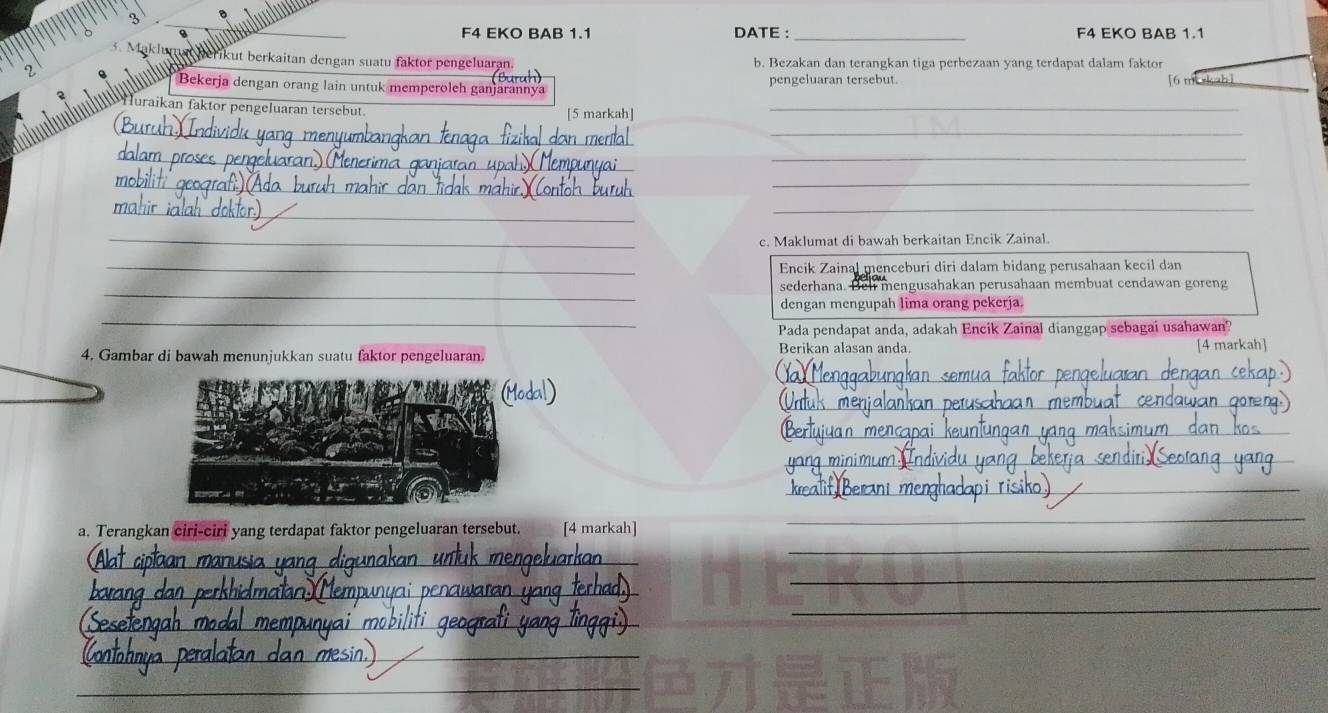 F4 EKO BAB 1.1
3. Maklumat berikut berkaitan dengan suatu faktor pengeluaran.
(Buruh)
Bekerja dengan orang lain untuk memperoleh ganjarannya
Huraikan faktor pengeluaran tersebut. [5 markah]
(Buruh.)(Individu yang menyumbangkan tenaga fizikal dan mental
dalam proses pengeluaran.)(Menerima ganjaran upah.)(Mempunyai
mobiliti geografi.)(Ada buruh mahir dan tidak mahir.)(Contoh buruh
mahir ialah doktor.)
4. Gambar di bawah menunjukkan suatu faktor pengeluaran.
(Modal)
a. Terangkan ciri-ciri yang terdapat faktor pengeluaran tersebut. [4 markah]
(Alat ciptaan manusia yang digunakan untuk mengeluarkan
barang dan perkhidmatan.)(Mempunyai penawaran yang terhad.)
(Sesetengah modal mempunyai mobiliti geografi yang tinggi.)
(Contohnya peralatan dan mesin.)
DATE : F4 EKO BAB 1.1
b. Bezakan dan terangkan tiga perbezaan yang terdapat dalam faktor
pengeluaran tersebut. [6 markah]
c. Maklumat di bawah berkaitan Encik Zainal.
Encik Zainal menceburi diri dalam bidang perusahaan kecil dan
Beliau
sederhana. mengusahakan perusahaan membuat cendawan goreng
dengan mengupah lima orang pekerja.
Pada pendapat anda, adakah Encik Zainal dianggap sebagai usahawan?
Berikan alasan anda. [4 markah]
(Ya)(Menggabungkan semua faktor pengeluaran dengan cekap.)
(Untuk menjalankan perusahaan membuat cendawan goreng.)
(Bertujuan mencapai keuntungan yang maksimum dan kos
yang minimum.)(Individu yang bekerja sendiri.)(Seorang yang
kreatif.)(Berani menghadapi risiko.)
TM
HERO
英雄粉色刀是正版
2
3